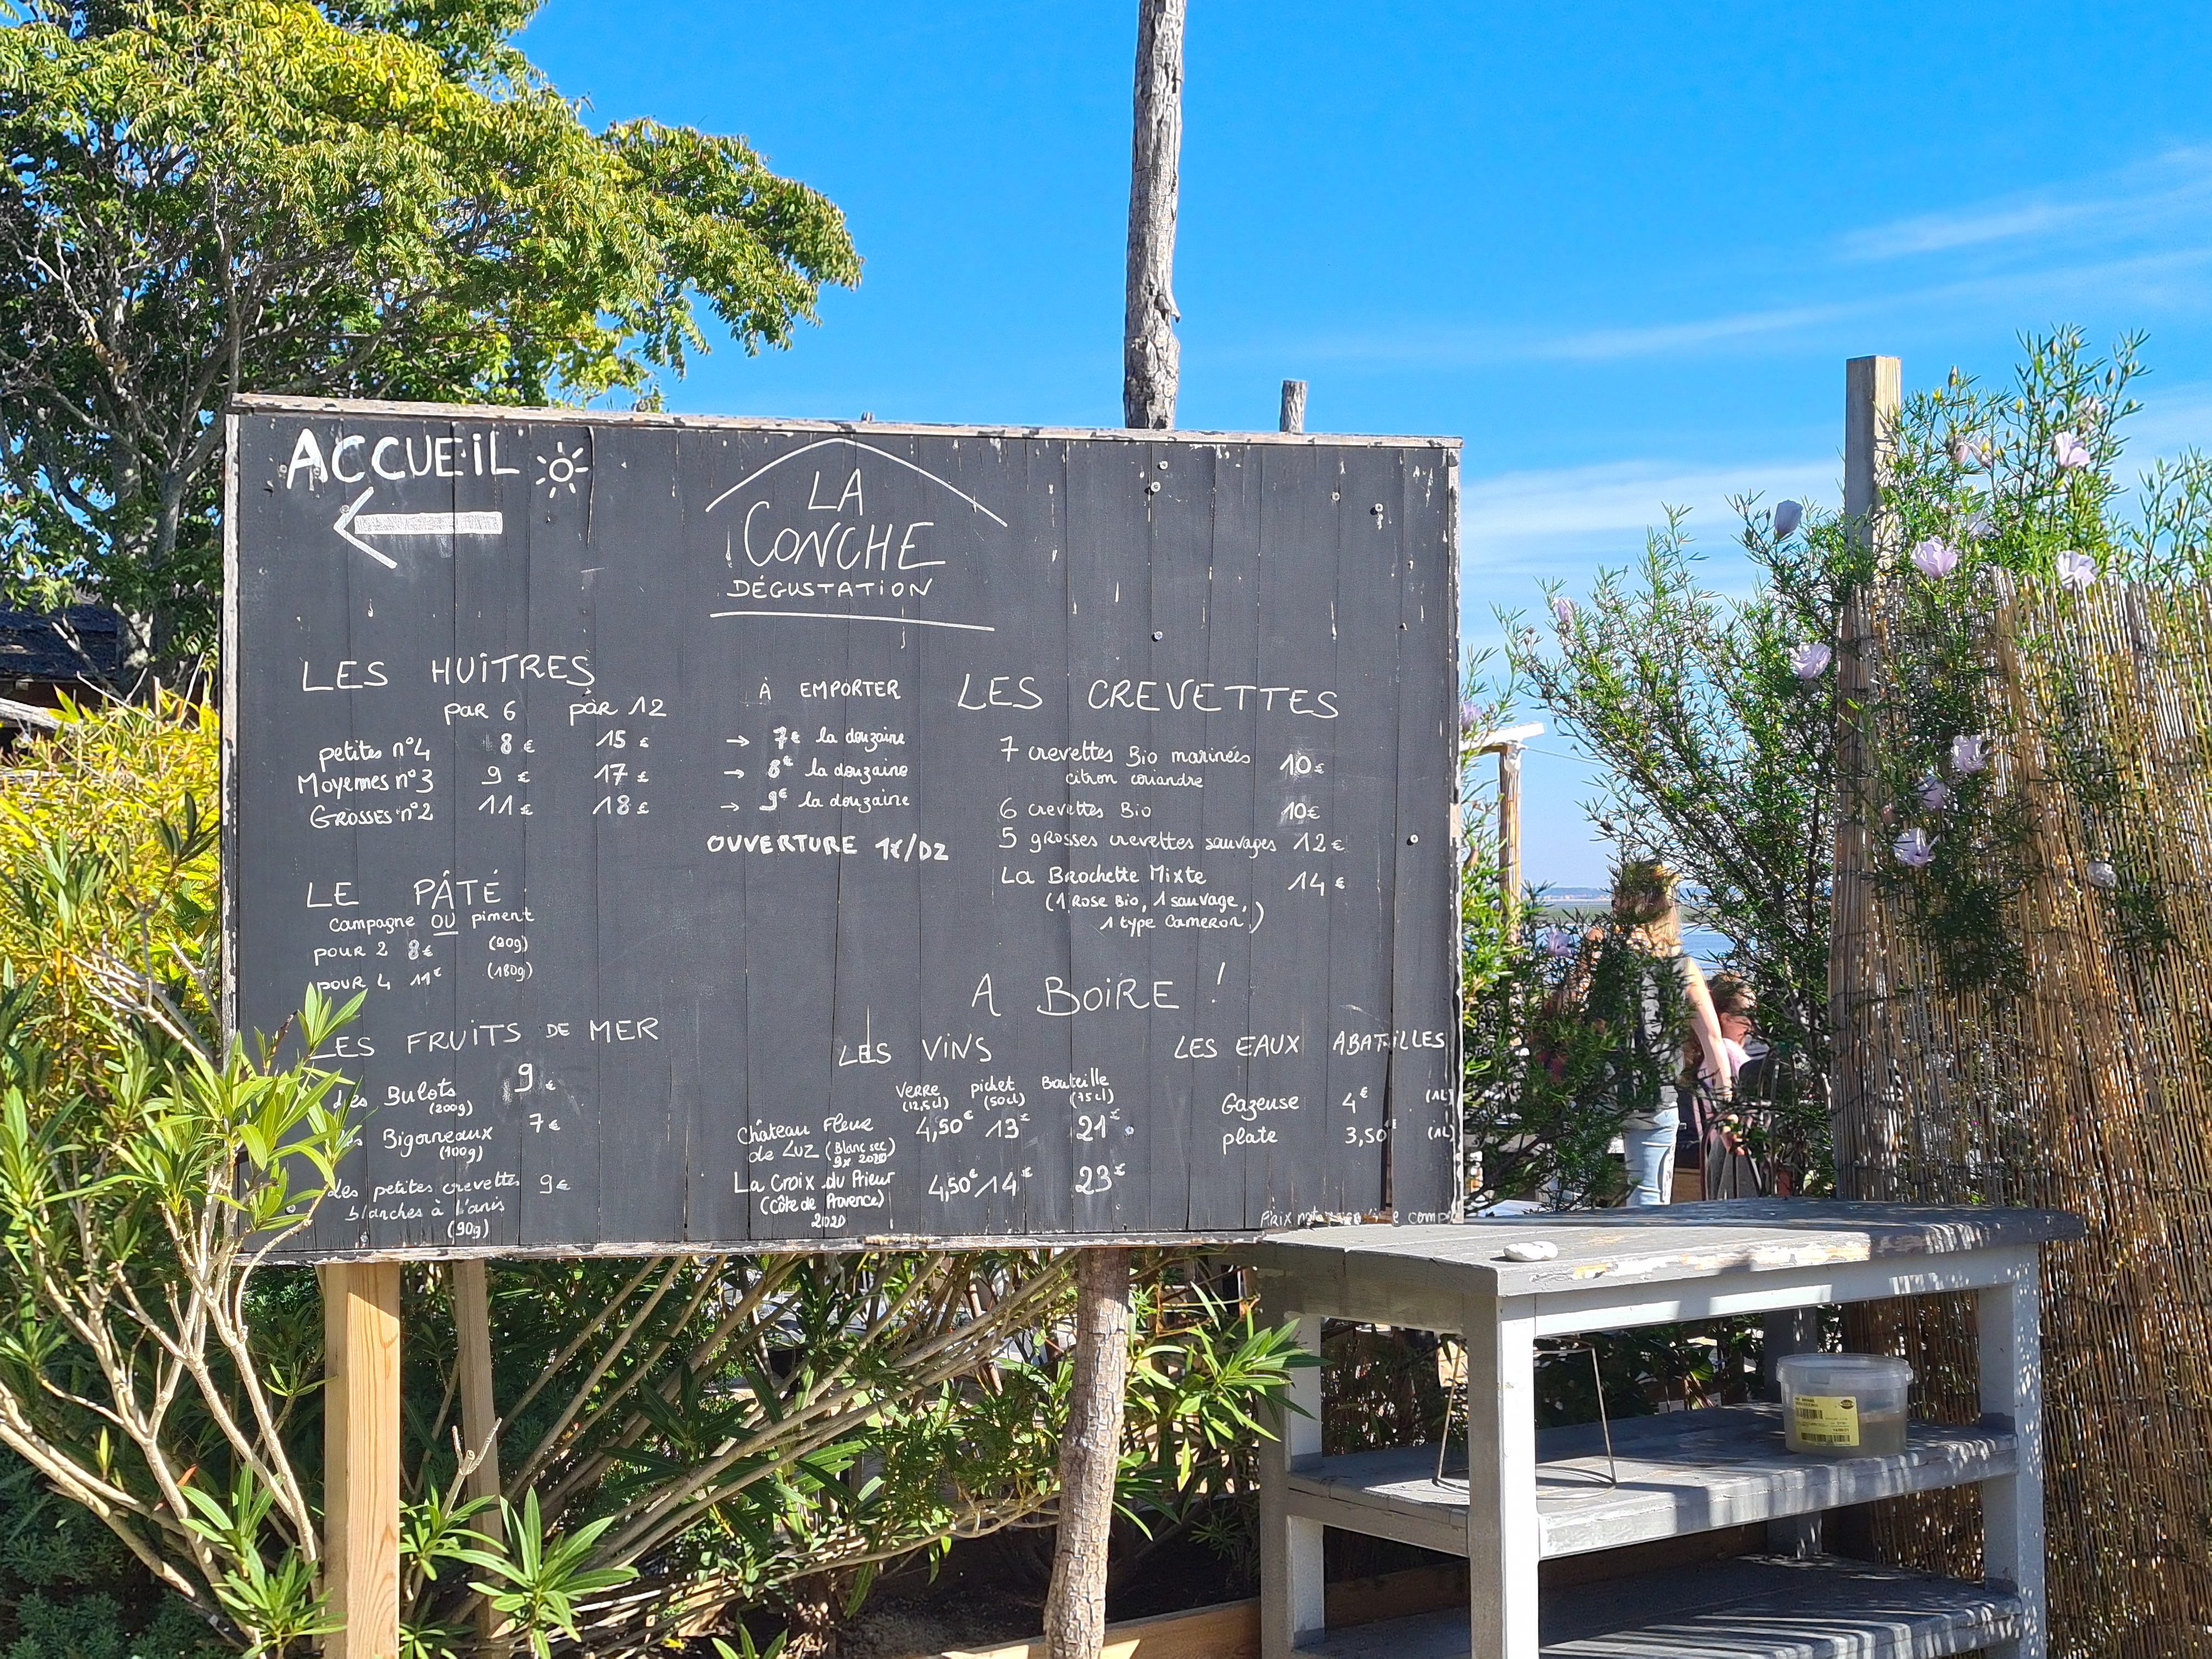 ACCUEIL
LA
CONCHE
DÉGUSTATION
LES HUîTRES
par 6 par 12
petites n°4 8 € 15 €
Moyennes n°3 9 € 17 €
Grosses n°2 11 € 18 €
À EMPORTER
→ 7€ la douzaine
→ 8€ la douzaine
→ 9€ la douzaine
OUVERTURE 1€/DZ
LE PÂTÉ
campagne OU piment
pour 2 8€ (90g)
pour 4 11€ (180g)
LES FRUITS DE MER
des Bulots 9 €
(200g)
Bigorneaux 7 €
(100g)
des petites crevettes 9€
blanches à l'anis
(90g)
LES CREVETTES
7 crevettes Bio marinées 10€
citron coriandre
6 crevettes Bio 10€
5 grosses crevettes sauvages 12€
La Brochette Mixte 14 €
(1 Rose Bio, 1 sauvage,
1 type Cameron,)
A BOIRE !
LES VINS
Verre pichet Bouteille
(12,5cl) (50cl) (75cl)
Château Fleur 4,50€ 13€ 21€
de Luz (Blanc sec)
2020
La Croix du Prieur 4,50€ 14€ 23€
(Côte de Provence)
2020
LES EAUX ABATILLES
Gazeuse 4€ (1L)
plate 3,50€ (1L)
Prix